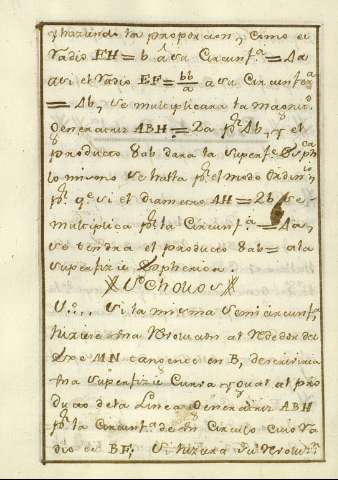 y haziendo la proporcion, Como el
radio EH = b â su Circunf.ª = 4a
asi el radio EF = bb/a a su Circunfer.ª
= 4b, se multiplicara la magnit.
generatriz ABH = 2a p.r 4b, y el
producto 8ab dara la superf.e Esph.ca
lo mismo se halla p.r el modo ordin.o,
p.r q.e si el diametro AH = 2b se
multiplica p.r la Circunf.ª = 4a,
se tendra el producto 8ab = a la
superfizie Espherica.
Scholios
1.º... Si la misma semicircunf.ª
hiziere una Revoluzn al rededor del
Exe MN tangente en B, describiria
una superfizie Curva ygual al pro
ducto de la Linea generatriz ABH
p.r la Circunf.ª de un Circulo cuio Ra
dio es BF; Si hiziera su Revoluz.n